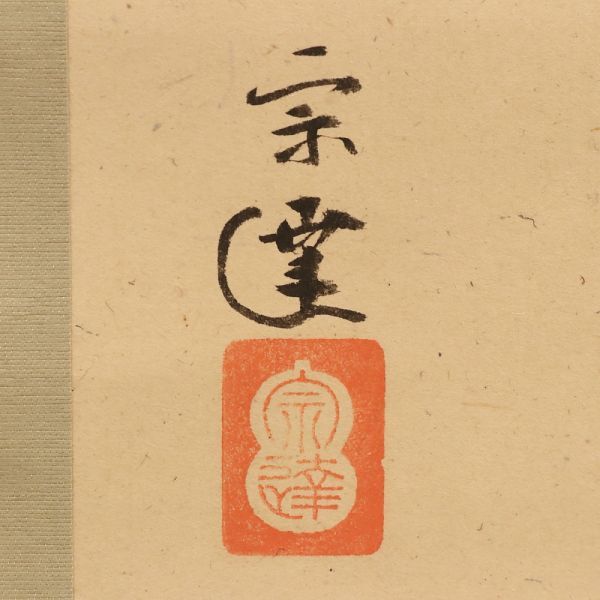 宗達
宗達